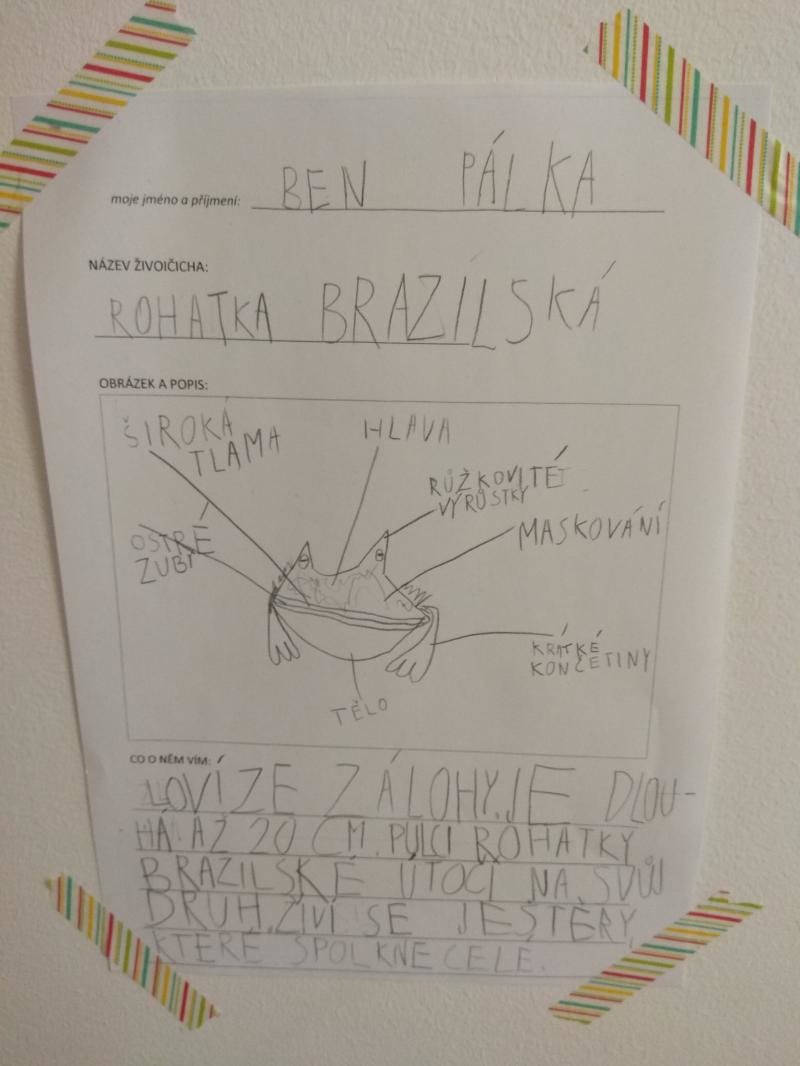 moje jméno a příjmení: BEN PÁLKA
NÁZEV ŽIVOIČICHA:
ROHATKA BRAZÍLSKÁ
OBRÁZEK A POPIS:
ŠIROKÁ
TLAMA
HLAVA
RŮŽKOVITÉ
VÝRŮSTKY
MASKOVÁNÍ
OSTRÉ
ZUBY
KRÁTKÉ
KONČETINY
TĚLO
CO O NĚM VÍM:
LOVÍ ZE ZÁLOHY. JE DLOU-
HÁ AŽ 20 CM. PULCI ROHATKY
BRAZILSKÉ ÚTOČÍ NA SVŮJ
DRUH. ŽIVÍ SE JEŠTĚRY,
KTERÉ SPOLKNE CELÉ.